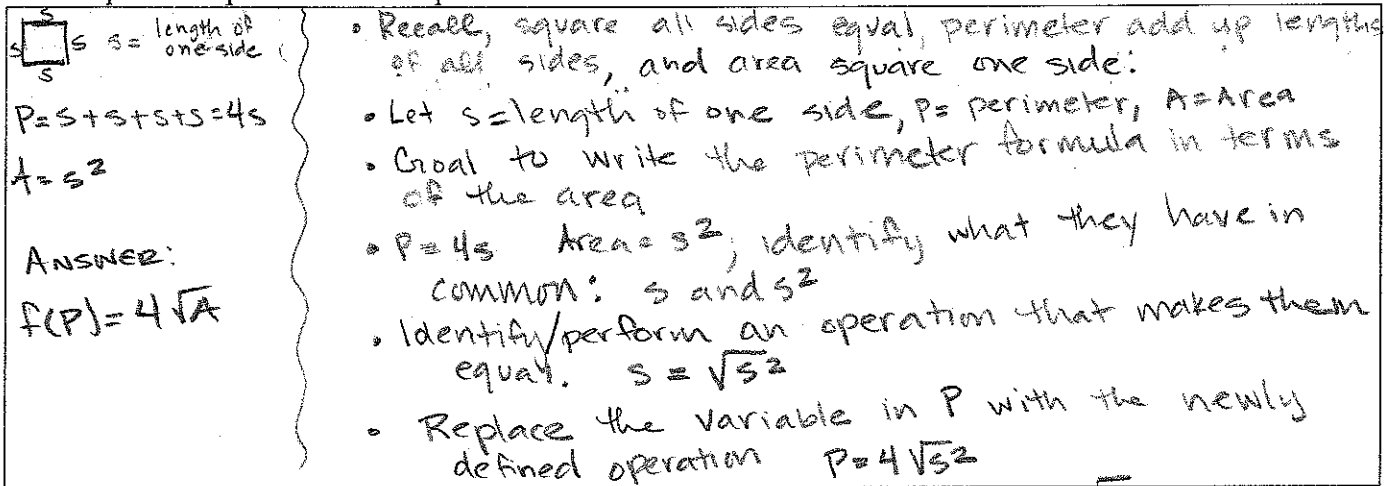 s
s s s = length of
one side
s
P=s+s+s+s=4s
A=s²
ANSWER:
f(P)=4√A
• Recall, square all sides equal, perimeter add up lengths
of all sides, and area square one side:
• Let s=length of one side, P= perimeter, A=Area
• Goal to write the perimeter formula in terms
of the area
• P=4s Area=s², identify what they have in
common: s and s²
• Identify/perform an operation that makes them
equal. s=√s²
• Replace the variable in P with the newly
defined operation P=4√s²